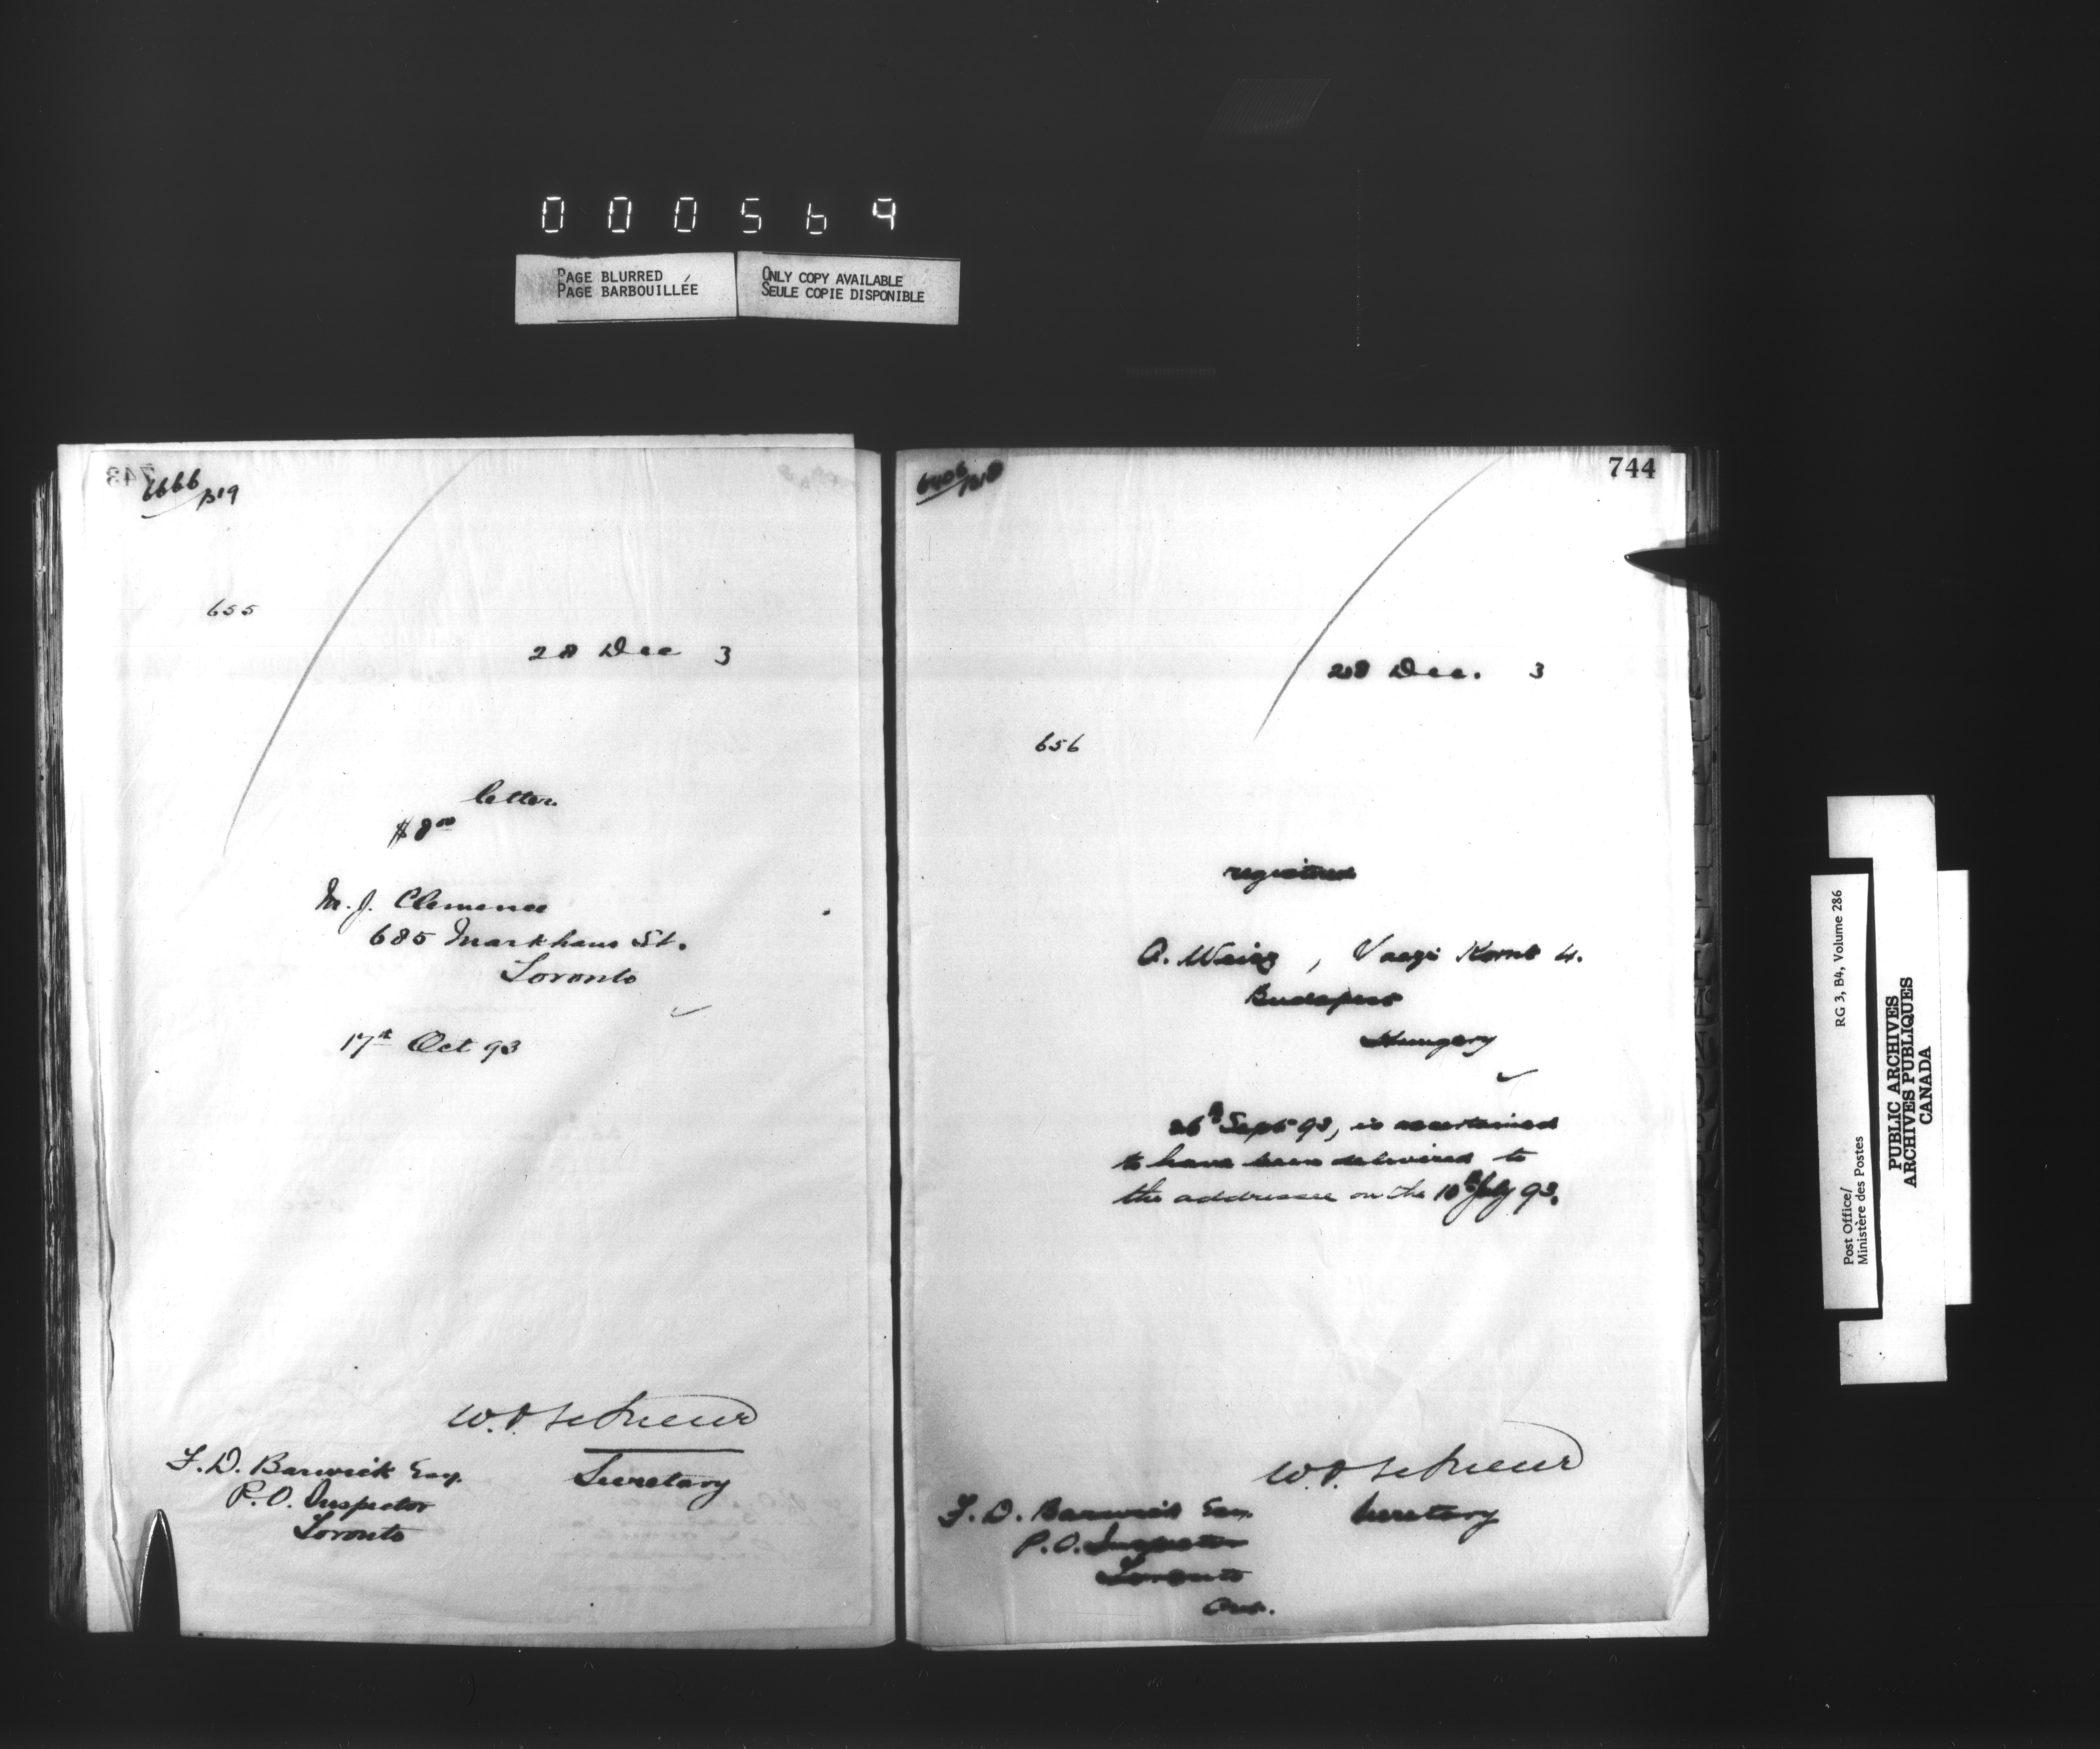 000569
PAGE BLURRED
PAGE BARBOUILLÉE
ONLY COPY AVAILABLE
SEULE COPIE DISPONIBLE
743
6666/B19
655
28 Dec 3
letter
$8 00
M. J. Clemence
685 Markham St.
Toronto
17th Oct 93
W.D. LeSueur
Secretary
F. D. Barwick Esq.
P.O. Inspector
Toronto
744
28 Dec. 3
656
registered
A. Weisz, 4.
Budapest
Hungary
26th Sept 93, is ascertained
to have been delivered to
the addressee on the 10th July 93.
W.D. LeSueur
Secretary
F. D. Barwick Esq.
P.O. Inspector
Toronto
Ont.
Post Office/ RG 3, B4, Volume 286
Ministère des Postes
PUBLIC ARCHIVES
ARCHIVES PUBLIQUES
CANADA